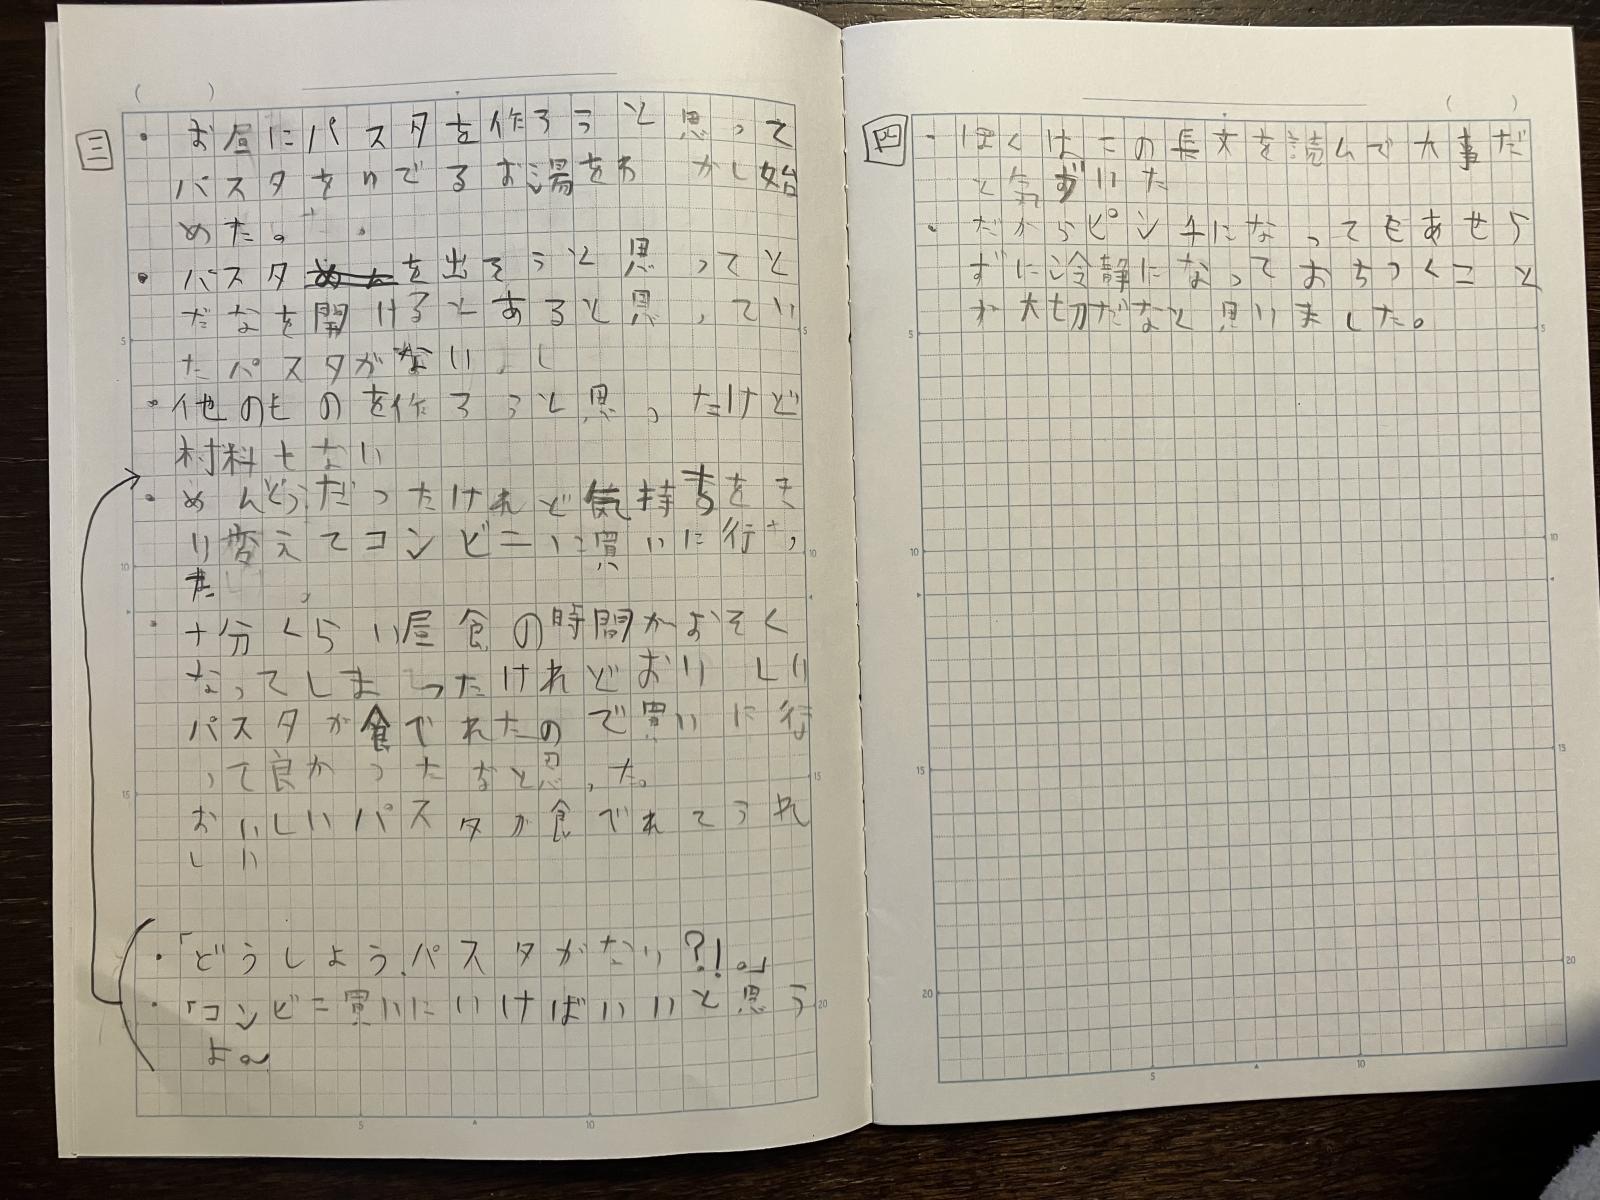 三
・お昼にパスタを作ろうと思って
パスタをゆでるお湯をわかし始
めた。
・パスタを出そうと思ってと
だなを開けるとあると思ってい
たパスタがない
・他のものを作ろうと思ったけど
材料もない
・めんどうだったけれど気持ちをき
り変えてコンビニに買いに行っ
た
・十分くらい昼食の時間がおそく
なってしまったけれどおいしい
パスタが食べれたので買いに行
って良かったなと思った。
おいしいパスタが食べれてうれ
しい
・「どうしよう、パスタがない?!。」
・「コンビニ買いにいけばいいと思う
よ〜
四
・ぼくはこの長文を読んで大事だ
と気ずいた
・だからピンチになってもあせら
ずに冷静になっておちつくこと
が大切だなと思いました。